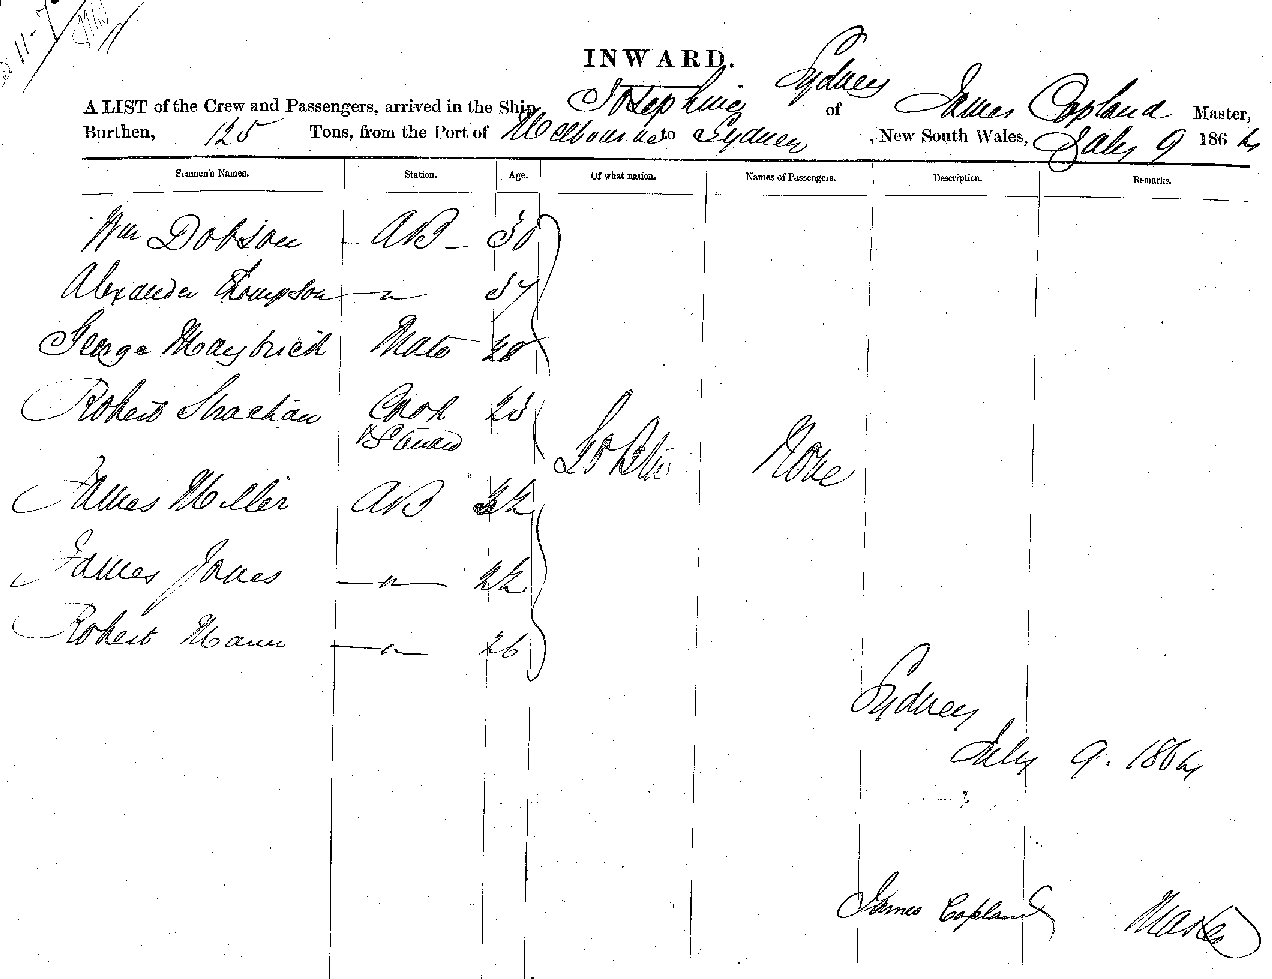 11-7
INWARD.
A LIST of the Crew and Passengers, arrived in the Ship Josephine of Sydney James Copland Master,
Burthen, 125 Tons, from the Port of Melbourne to Sydney, New South Wales, July 9 1864
Seamen's Names. Station. Age. Of what nation. Names of Passengers. Description. Remarks.
Wm Dobson AB 30
Alexander Thompson — " 37
George Maybrick Mate 28
Robert Strachan Cook 23
& Steward
G. Britn None
James Miller AB 22
James Jones — " — 22
Robert Mann — " — 26
Sydney
July 9. 1864
James Copland Master